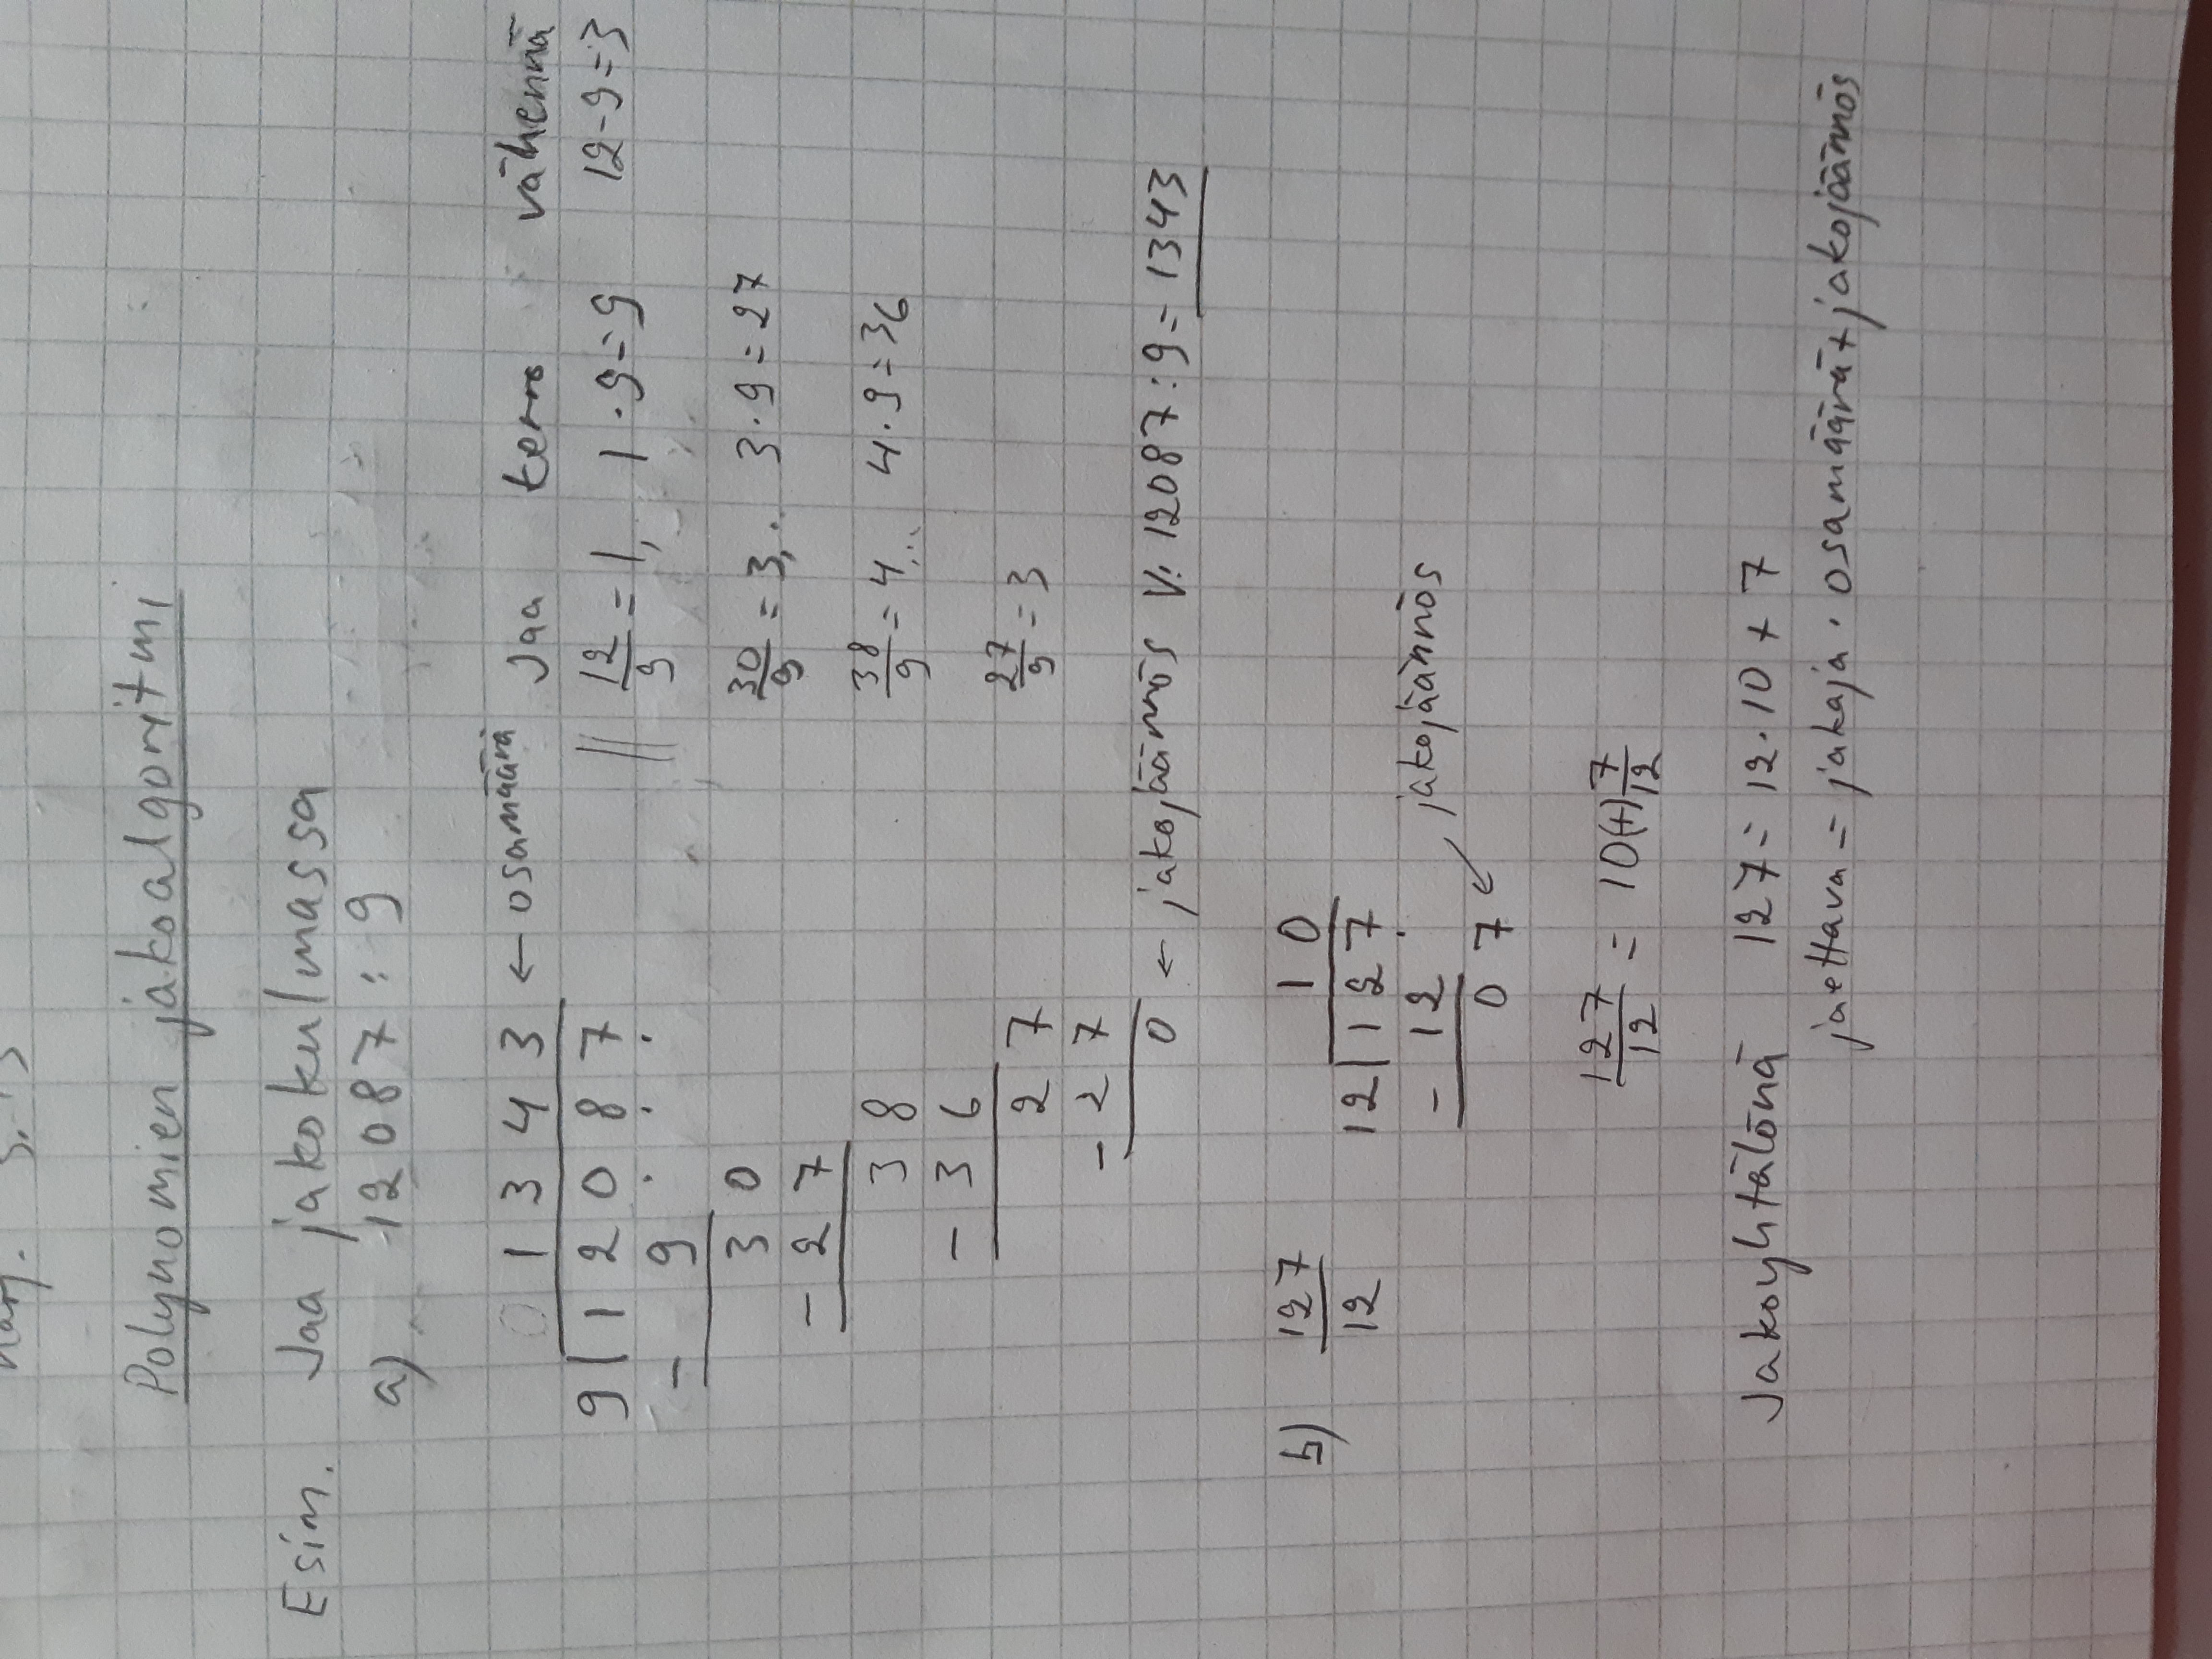 Polynomien jakoalgoritmi
Esim. Jaa jakokulmassa
a) 12087 : 9
0 1 3 4 3 ← osamäärä Jaa kerro vähennä
9 | 1 2 0 8 7 || 12/9 = 1, 1 · 9 = 9 12 - 9 = 3
- 9
3 0 30/9 = 3,.. 3 · 9 = 27
- 2 7
3 8 38/9 = 4,.. 4 · 9 = 36
- 3 6
2 7 27/9 = 3
- 2 7
0 ← jakojäännös V: 12087 : 9 = 1343
b) 127/12
1 0
12 | 1 2 7
- 1 2 jakojäännös
0 7 ↙
127/12 = 10(+) 7/12
Jakoyhtälönä 127 = 12 · 10 + 7
jaettava = jakaja · osamäärä + jakojäännös